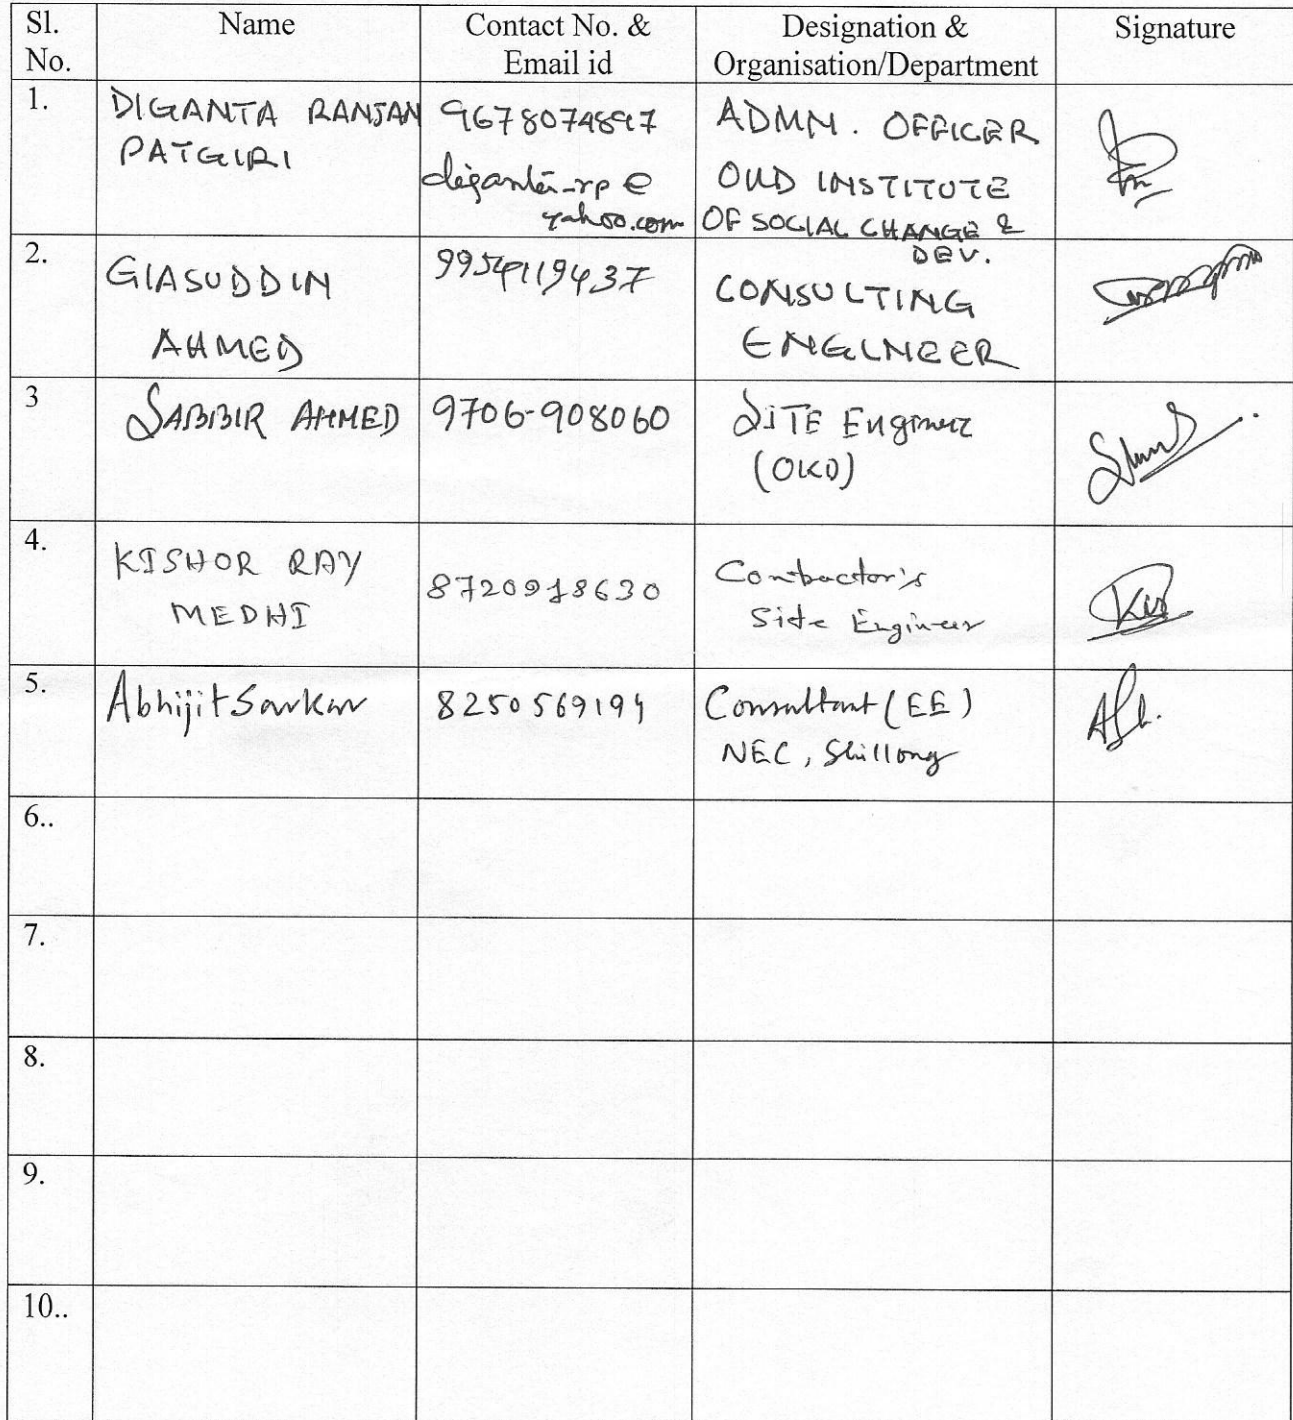 Sl. No. Name Contact No. & Email id Designation & Organisation/Department Signature
1. DIGANTA RANJAN PATGIRI 9678074897 diganta_rp@yahoo.com ADMN. OFFICER OKD INSTITUTE OF SOCIAL CHANGE & DEV.
2. GIASUDDIN AHMED 9954119437 CONSULTING ENGINEER
3 SABBIR AHMED 9706-908060 SITE Engineer (OKD)
4. KISHOR RAY MEDHI 8720918630 Contractor's Site Engineer
5. Abhijit Sarkar 8250569194 Consultant (EE) NEC, Shillong
6..
7.
8.
9.
10..